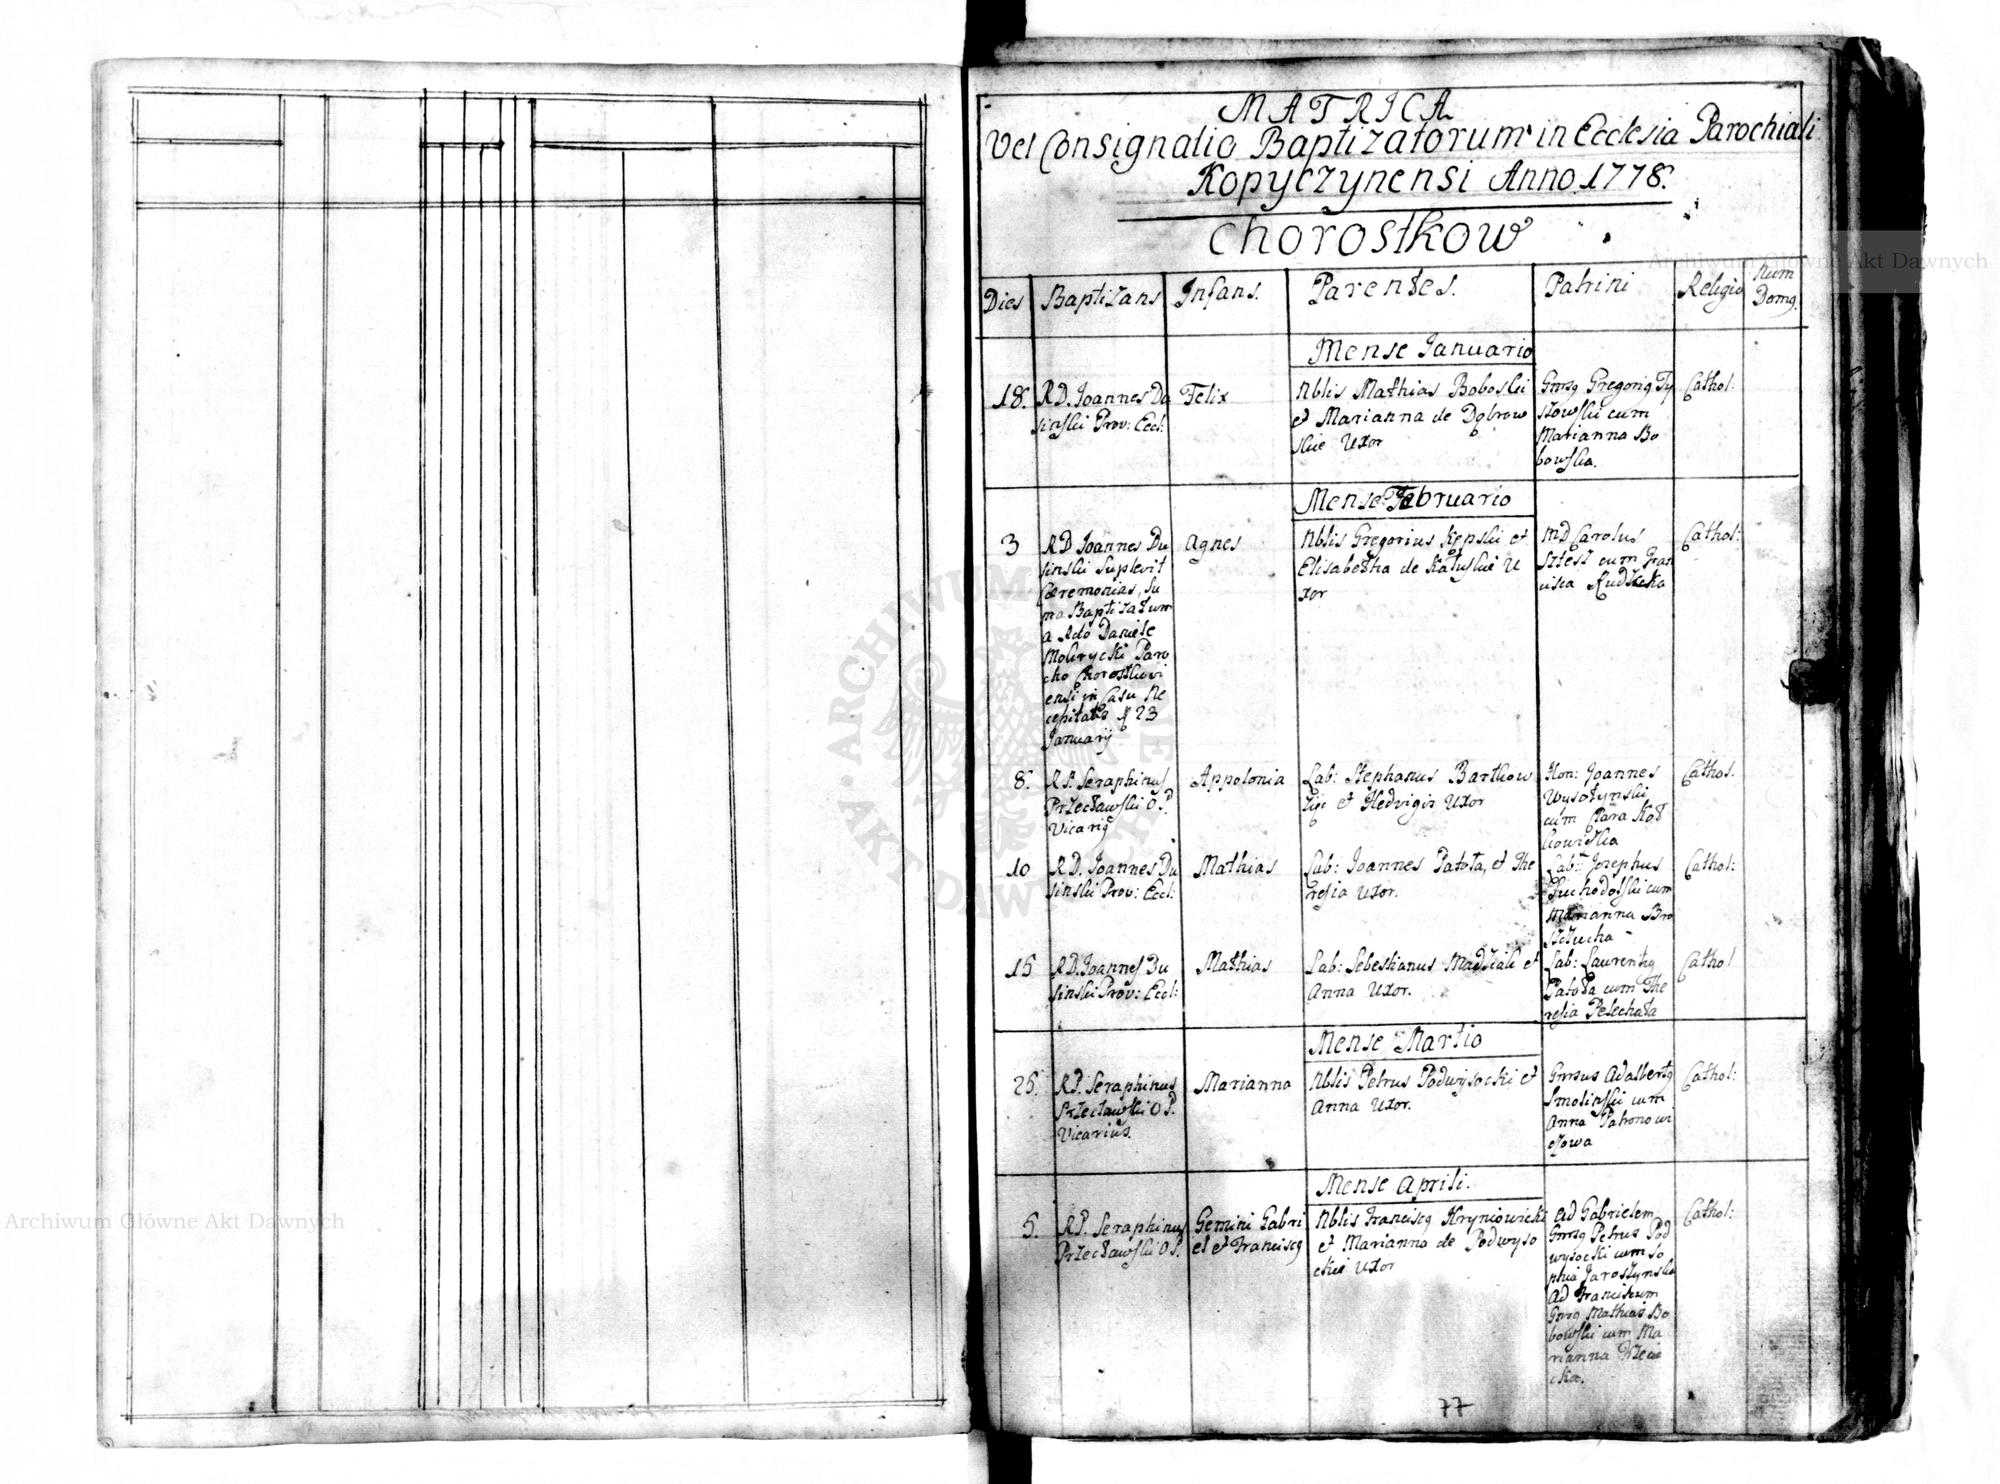 MATRICA
Vel Consignatio Baptizatorum in Ecclesia Parochiali
Kopyczynensi Anno 1778.
Chorostkow
Dies Baptizans Infans. Parentes. Patrini Religio Num Domq.
Mense Ianuario
18. RD. Joannes Du
sinski Prov: Eccl:
Felix
Nblis Mathias Boboski
et Marianna de Dobrow
skie Uxor
Gnrsq Gregoriq Ty
szowski cum
Marianna Bo
bowska.
Cathol:
Mense Februario
3
RD Joannes Du
sinski Suplevit
Cæremonias, Su
pra Baptizatum
a Rdo Daniele
Mokrycki Paro
cho Chorostkovi
ensi in Casu Ne
cessitatis
23
Januarij
Agnes
Nblis Gregorius Kępski et
Elisabetha de Katuskie U
xor
MD Carolus
cum Fran
cisca Rudzcka
Cathol:
8.
RP. Seraphinus
Przecławski OP.
Vicariq
Appolonia
Lab: Stephanus Bartkow
et Hedvigis Uxor
Hon: Joannes
Wysotynski
cum Clara Kot
kowiska
Cathol.
10
RD. Joannes Du
sinski Prov: Eccl:
Mathias
Lab: Joannes Patoła, et The
resia Uxor.
Lab: Josephus
Suchodolski cum
Marianna Bro
szczucha
Cathol:
15
RD. Joannes Du
sinski Prov: Eccl:
Mathias
Lab: Sebestianus Madziak et
Anna Uxor.
Lab: Laurentiq
Patoła cum The
resia Pelechata
Cathol
Mense Martio
25.
RP. Seraphinus
Przecławski OP.
Vicarius.
Marianna
Nblis Petrus Podwysocki et
Anna Uxor.
Gnrsus Adalbertq
Smolinski cum
Anna Patronowi
czowa
Cathol:
Mense Aprili.
5.
RP. Seraphinus
Przecławski OP.
Gemini Gabri
el et Francisq
Nblis Francisq Kryniowicki
et Marianna de Podwyso
ckie Uxor
Ad Gabrielem
Gnrsq Petrus Pod
wysocki cum So
phia Jaroszynska
Ad Franciscum
Gnrsq Mathias Bo
bowski cum Ma
rianna
cka.
Cathol:
77
Archiwum Główne Akt Dawnych
Archiwum Główne Akt Dawnych
ARCHIWUM GŁÓWNE AKT DAWNYCH